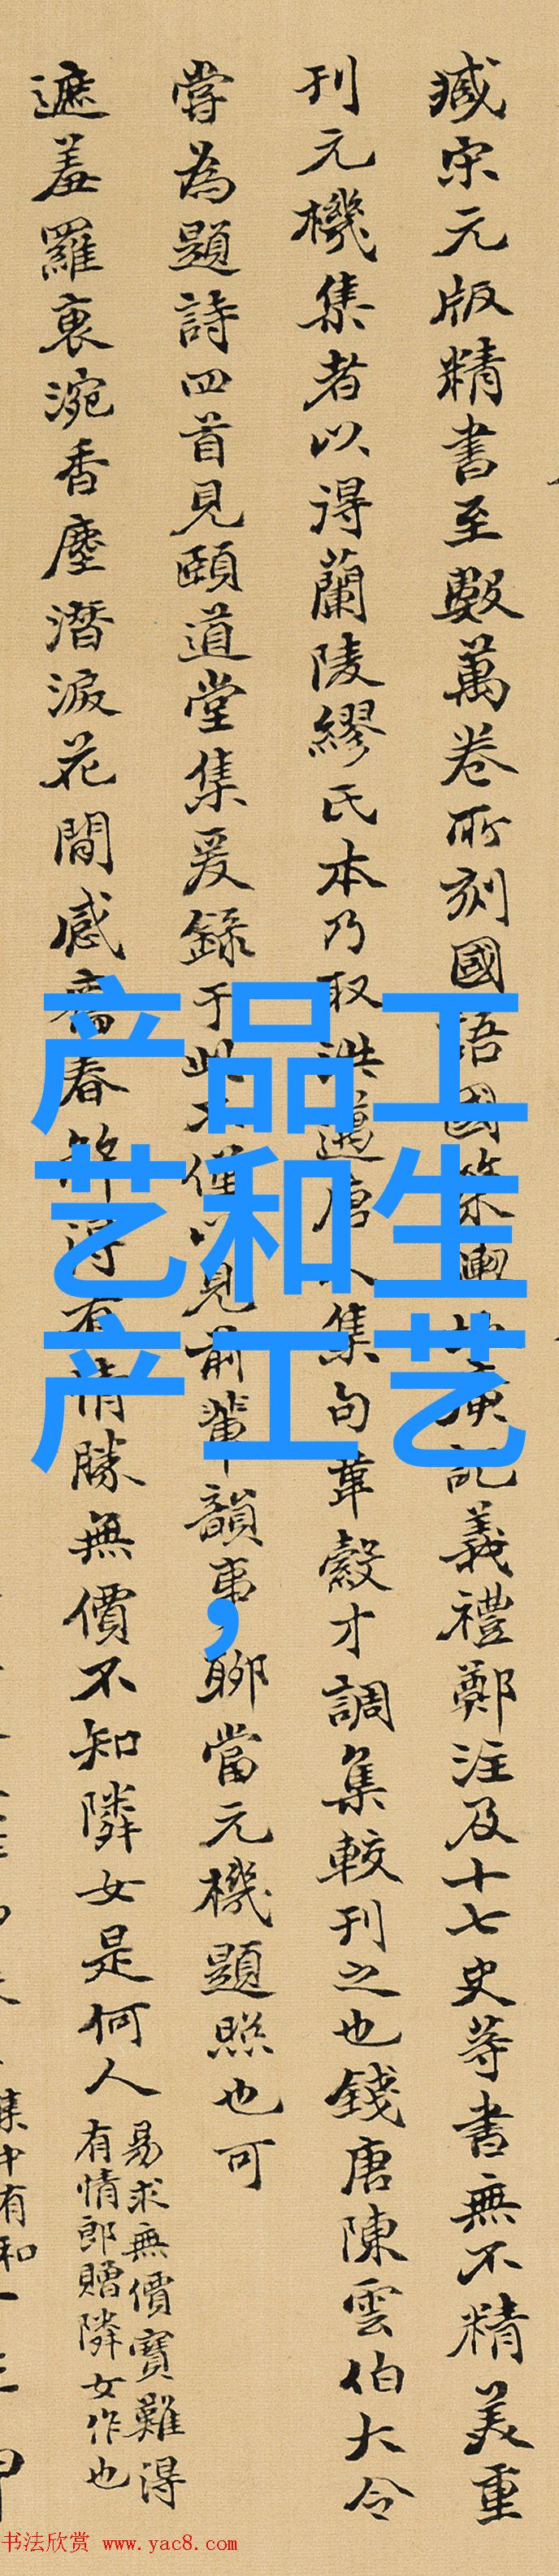 臧宋元版精書至數萬卷所刻國語國策輿地廣記義禮鄭注及十七史等書無不精美重
刊元機集者以得蘭陵繆氏本乃取洪邁唐人集句韋縠才調集較刊之也錢唐陳雲伯大令
嘗為題詩四首見頤道堂集爰錄于此不僅以見前輩韻事聊當元機題照也可
遮羞羅裹涴香塵潛淚花閒感舊春解得有情勝無價不知隣女是何人
易求無價寶難得
有情郎贈隣女作也
产品工
艺和生
产工艺
，
书法欣赏 www.yac8.com